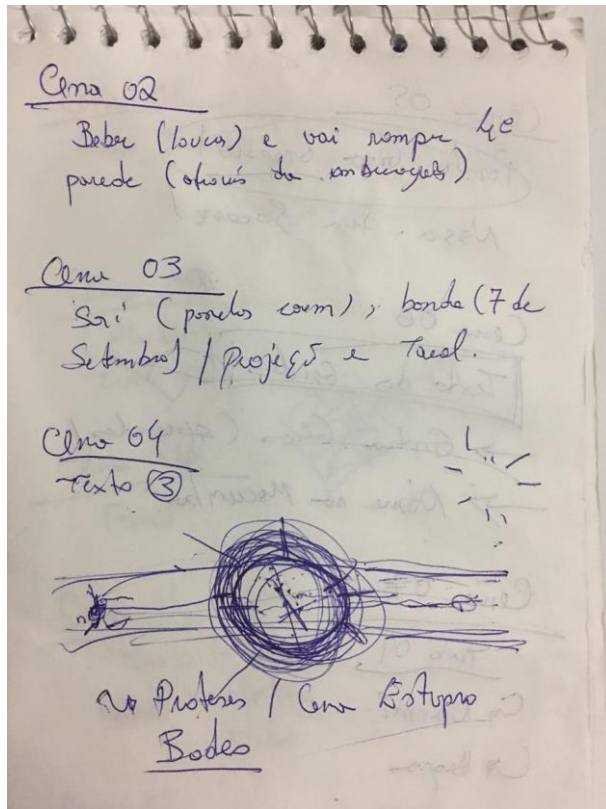 Cena 02
Beber (louca) e vai romper 4ª
parede (através da
Cena 03
(panelas caem), banda (7 de
Setembro) / Projeçõ e
Cena 04
Texto ③
Proteses / Cena Estupro
Bodes